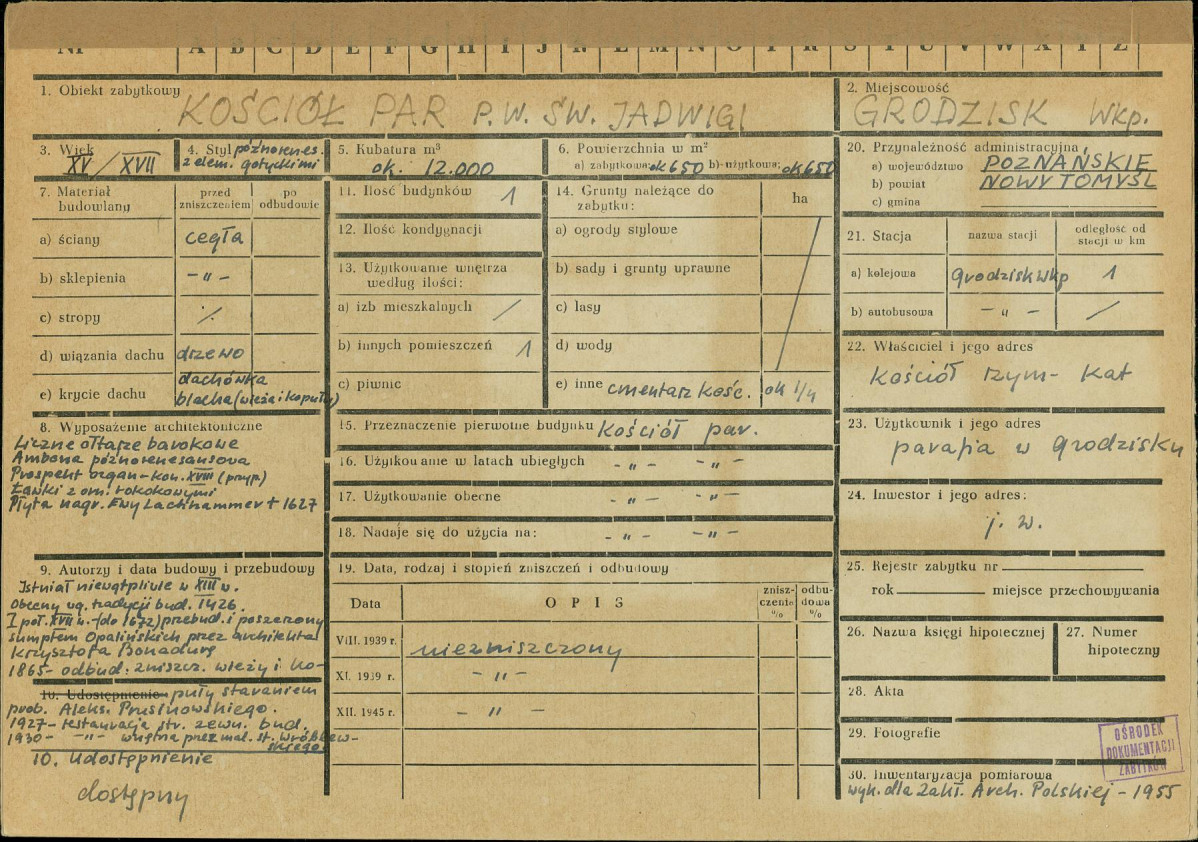 Nr A B C D E F G H I J K L M N O P R S T U V W X Y Z
1. Obiekt zabytkowy
KOŚCIÓŁ PAR P.W. ŚW. JADWIGI
2. Miejscowość
GRODZISK Wkp.
3. Wiek
XV/XVII
4. Styl późnorenes.
z elem. gotyckimi
5. Kubatura m³
ok. 12.000
6. Powierzchnia w m²
a) zabytkowa: ok 650 b) użytkowa: ok 650
20. Przynależność administracyjna
a) województwo POZNAŃSKIE
b) powiat NOWY TOMYŚL
c) gmina
7. Materiał budowlany
przed zniszczeniem
po odbudowie
a) ściany cegła
b) sklepienia -"-
c) stropy ·/.
d) wiązania dachu drzewo
e) krycie dachu dachówka
blacha (wieża i kopuły)
11. Ilość budynków 1
12. Ilość kondygnacji
13. Użytkowanie wnętrza
według ilości:
a) izb mieszkalnych /
b) innych pomieszczeń 1
c) piwnic
14. Grunty należące do
zabytku:
ha
a) ogrody stylowe
b) sady i grunty uprawne
c) lasy
d) wody
e) inne cmentarz kośc. ok 1/4
21. Stacja
nazwa stacji
odległość od
stacji w km
a) kolejowa Grodzisk wkp 1
b) autobusowa - " - /
22. Właściciel i jego adres
Kościół rzym- kat
8. Wyposażenie architektoniczne
Liczne ołtarze barokowe
Ambona późnorenesansowa
Prospekt organ-kon. XVIII (przyp.)
Ławki z orn. rokokowymi
Płyta nagr. Ewy Lachhammer † 1627
15. Przeznaczenie pierwotne budynku Kościół par.
16. Użytkowanie w latach ubiegłych - " - - " -
17. Użytkowanie obecne - " - - " -
18. Nadaje się do użycia na: - " - - " -
23. Użytkownik i jego adres
parafia w Grodzisku
24. Inwestor i jego adres:
j. w.
9. Autorzy i data budowy i przebudowy
Istniał niewątpliwie w XIII w.
Obecny wg. tradycji bud. 1426.
I poł. XVII w. (do 1672) przebud. i poszerzony
sumptem Opalińskich przez architekta
Krzysztofa Bonadurę
1865- odbud. zniszcz. wieży i ko-
10. Udostępnienie puły staraniem
prob. Aleks. Prusinowskiego.
1927- restauracja str. zewn. bud.
1930- -"- wnętrza przez mal. St. Wróblew-
skiego
10. Udostępnienie
dostępny
19. Data, rodzaj i stopień zniszczeń i odbudowy
Data
OPIS
znisz-
czenie
%
odbu-
dowa
%
VIII. 1939 r. niezniszczony
XI. 1939 r. - " -
XII. 1945 r. - " -
25. Rejestr zabytku nr
rok miejsce przechowywania
26. Nazwa księgi hipotecznej
27. Numer
hipoteczny
28. Akta
29. Fotografie
OŚRODEK
DOKUMENTACJI
ZABYTKÓW
30. Inwentaryzacja pomiarowa
wyk. dla Zakł. Arch. Polskiej - 1955